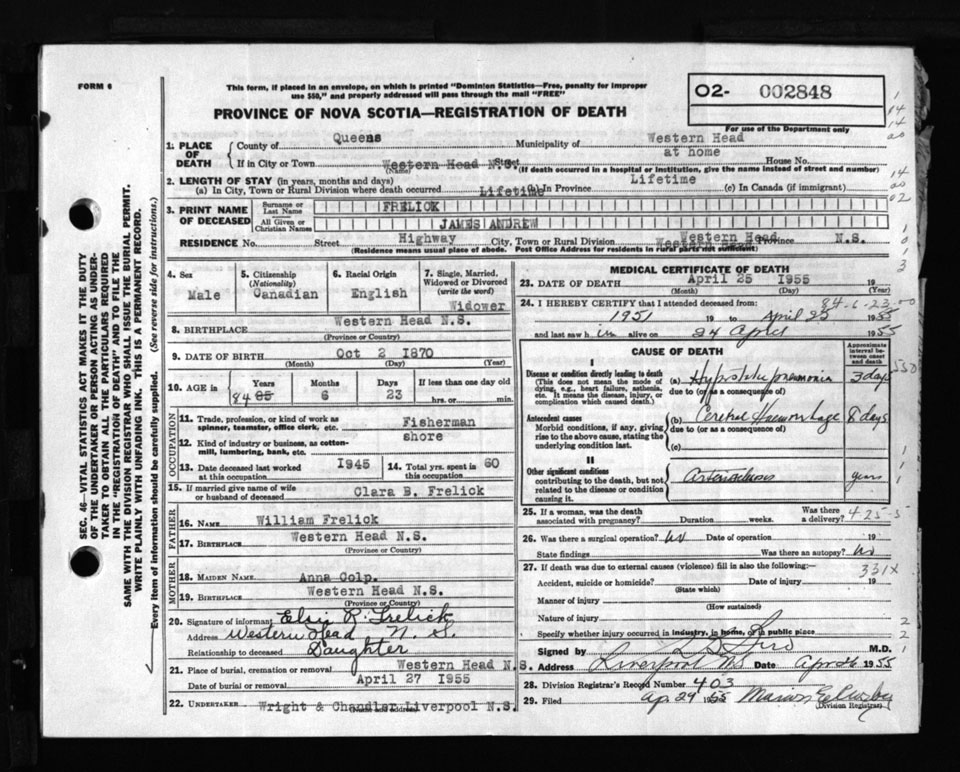 FORM 6
This form, if placed in an envelope, on which is printed "Dominion Statistics—Free, penalty for improper
use $50," and properly addressed will pass through the mail "FREE"
O2- 002848
For use of the Department only
PROVINCE OF NOVA SCOTIA—REGISTRATION OF DEATH
SEC. 46—VITAL STATISTICS ACT MAKES IT THE DUTY
OF THE UNDERTAKER OR PERSON ACTING AS UNDER-
TAKER TO OBTAIN ALL THE PARTICULARS REQUIRED
IN THE "REGISTRATION OF DEATH" AND TO FILE THE
SAME WITH THE DIVISION REGISTRAR WHO SHALL ISSUE THE BURIAL PERMIT.
WRITE PLAINLY WITH UNFADING INK. THIS IS A PERMANENT RECORD.
Every item of information should be carefully supplied. (See reverse side for instructions.)
1. PLACE OF DEATH
County of Queens Municipality of Western Head
at home
If in City or Town Western Head N.S. Street House No.
(Name) (If death occurred in a hospital or institution, give the name instead of street and number)
2. LENGTH OF STAY (in years, months and days) Lifetime
(a) In City, Town or Rural Division where death occurred Lifetime (b) In Province (c) In Canada (if immigrant)
3. PRINT NAME OF DECEASED
Surname or Last Name FRELICK
All Given or Christian Names JAMES ANDREW
RESIDENCE No. Street Highway City, Town or Rural Division Western Head Province N.S.
(Residence means usual place of abode. Post Office Address for residents in rural parts not sufficient)
4. Sex Male
5. Citizenship (Nationality) Canadian
6. Racial Origin English
7. Single, Married, Widowed or Divorced (write the word) Widower
8. BIRTHPLACE Western Head N.S.
(Province or Country)
9. DATE OF BIRTH Oct 2 1870
(Month) (Day) (Year)
10. AGE in Years Months Days If less than one day old
84 85 6 23 hrs. or min.
OCCUPATION
11. Trade, profession, or kind of work as spinner, teamster, office clerk, etc. Fisherman
12. Kind of industry or business, as cotton-mill, lumbering, bank, etc. shore
13. Date deceased last worked at this occupation 1945
14. Total yrs. spent in this occupation 60
15. If married give name of wife or husband of deceased Clara B. Frelick
FATHER
16. NAME William Frelick
17. BIRTHPLACE Western Head N.S.
(Province or Country)
MOTHER
18. MAIDEN NAME Anna Colp.
19. BIRTHPLACE Western Head N.S.
(Province or Country)
20. Signature of informant Elsie R. Frelick
Address Western Head N. S.
Relationship to deceased Daughter
21. Place of burial, cremation or removal Western Head N.S.
Date of burial or removal April 27 1955
22. UNDERTAKER Wright & Chandler Liverpool N.S.
MEDICAL CERTIFICATE OF DEATH
23. DATE OF DEATH April 25 1955
(Month) (Day) (Year)
84-6-23-00
24. I HEREBY CERTIFY that I attended deceased from:
1951 19 to April 25 1955
and last saw him alive on 24 April 1955
CAUSE OF DEATH
Approximate interval between onset and death
I
Disease or condition directly leading to death
(This does not mean the mode of dying, e.g., heart failure, asthenia, etc. It means the disease, injury, or complication which caused death.)
(a) Hypostatic pneumonia 3 days
due to (or as a consequence of)
Antecedent causes
Morbid conditions, if any, giving rise to the above cause, stating the underlying condition last.
(b) Cerebral Haemorrhage 8 days
due to (or as a consequence of)
(c)
II
Other significant conditions
contributing to the death, but not related to the disease or condition causing it.
years
25. If a woman, was the death associated with pregnancy? Duration weeks. Was there a delivery?
26. Was there a surgical operation? no Date of operation 19
State findings Was there an autopsy? no
27. If death was due to external causes (violence) fill in also the following:— 331X
Accident, suicide or homicide? Date of injury 19
(State which)
Manner of injury
(How sustained)
Nature of injury
Specify whether injury occurred in industry, in home, or in public place
Signed by M.D.
Address Liverpool NS Date Apr 26 1955
28. Division Registrar's Record Number 403
29. Filed Apr 29 1955
(Division Registrar)